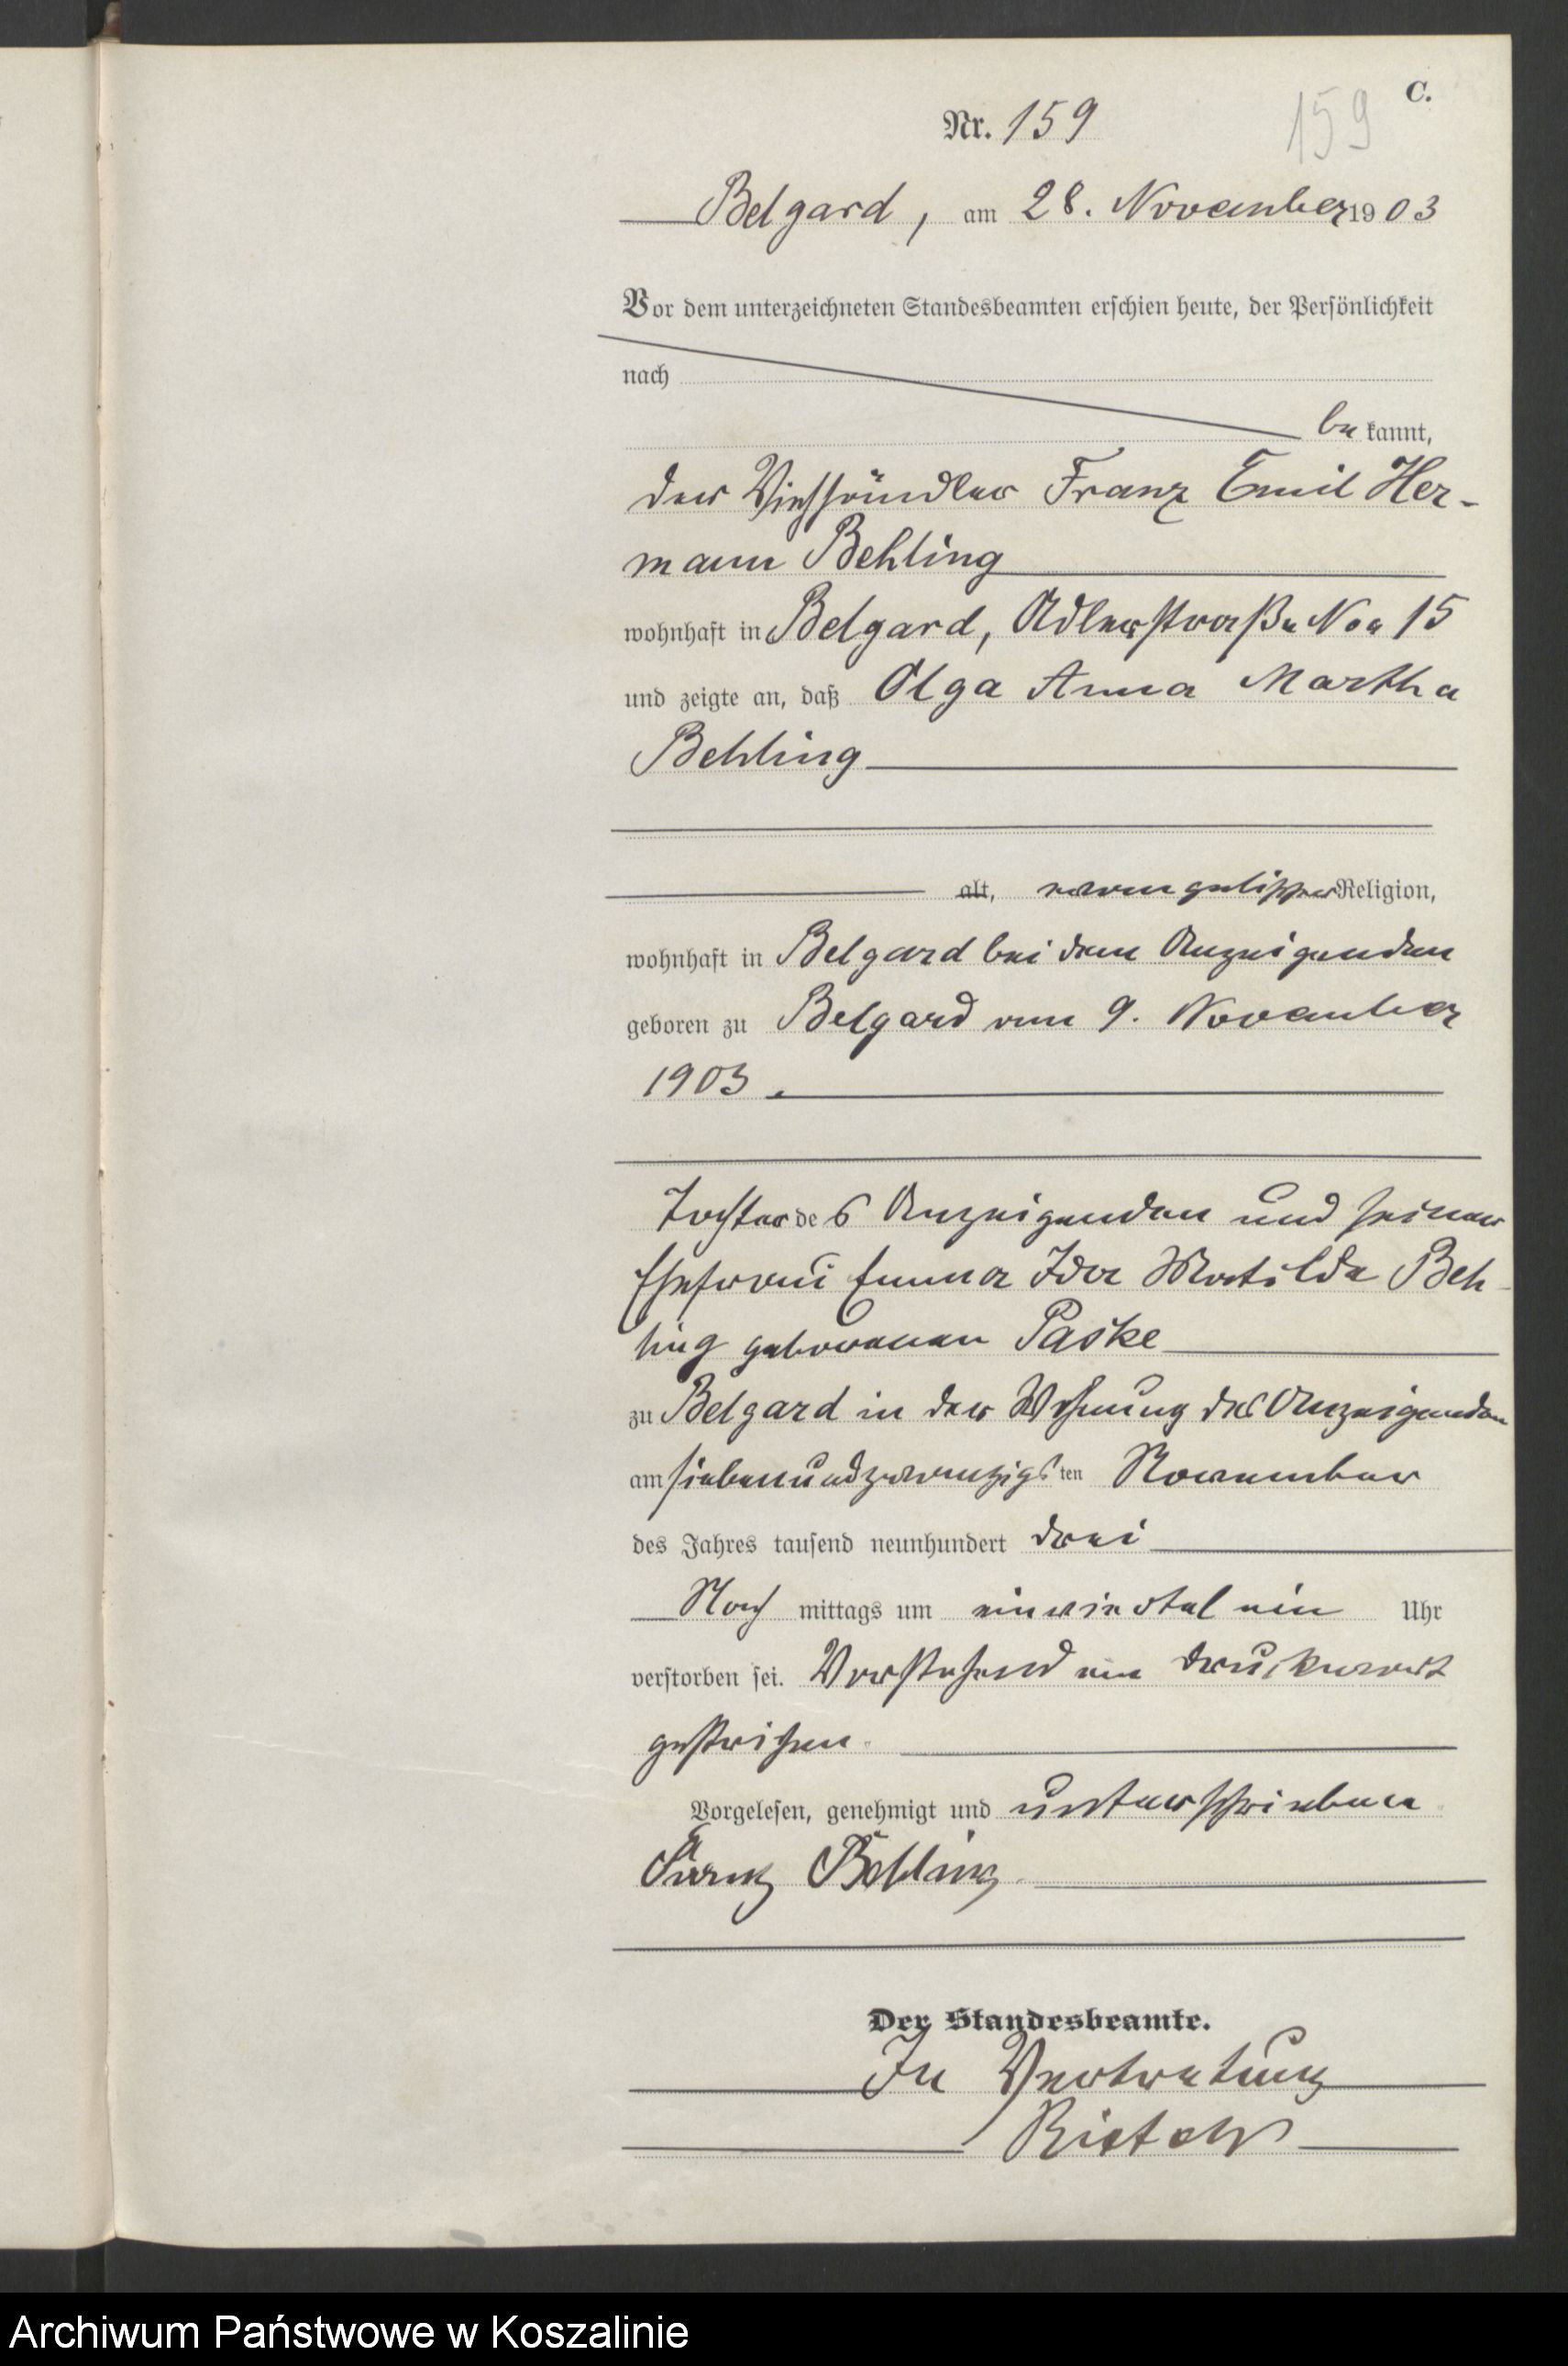 C.
Nr. 159
159
Belgard, am 28. November 1903
Vor dem unterzeichneten Standesbeamten erschien heute, der Persönlichkeit
nach
be kannt,
der Viehhändler Franz Emil Her-
mann Behling
wohnhaft in Belgard, Adlerstraße No 15
und zeigte an, daß Olga Anna Martha
Behling
alt, evangelischer Religion,
wohnhaft in Belgard bei dem Anzeigenden
geboren zu Belgard am 9. November
1903.
Tochter des Anzeigenden und seiner
Ehefrau Emma Ida Mathilde Beh-
ling geborenen Paske
zu Belgard in der Wohnung des Anzeigenden
am siebenundzwanzigsten November
des Jahres tausend neunhundert drei
Nach mittags um einviertel ein Uhr
verstorben sei. Vorstehend ein Druckwort
gestrichen.
Vorgelesen, genehmigt und unterschrieben
Franz Behling
Der Standesbeamte.
In Vertretung
Archiwum Państwowe w Koszalinie